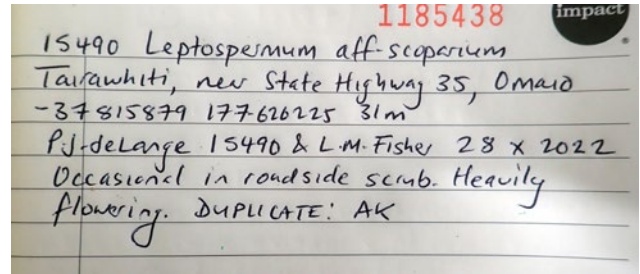 1185438
impact
15490 Leptospermum aff. scoparium
Tairawhiti, near State Highway 35, Omaio
-37 815879 177.626225 31m
P.J. de Lange 15490 & L.M. Fisher 28 X 2022
Occasional in roadside scrub. Heavily
flowering. DUPLICATE: AK